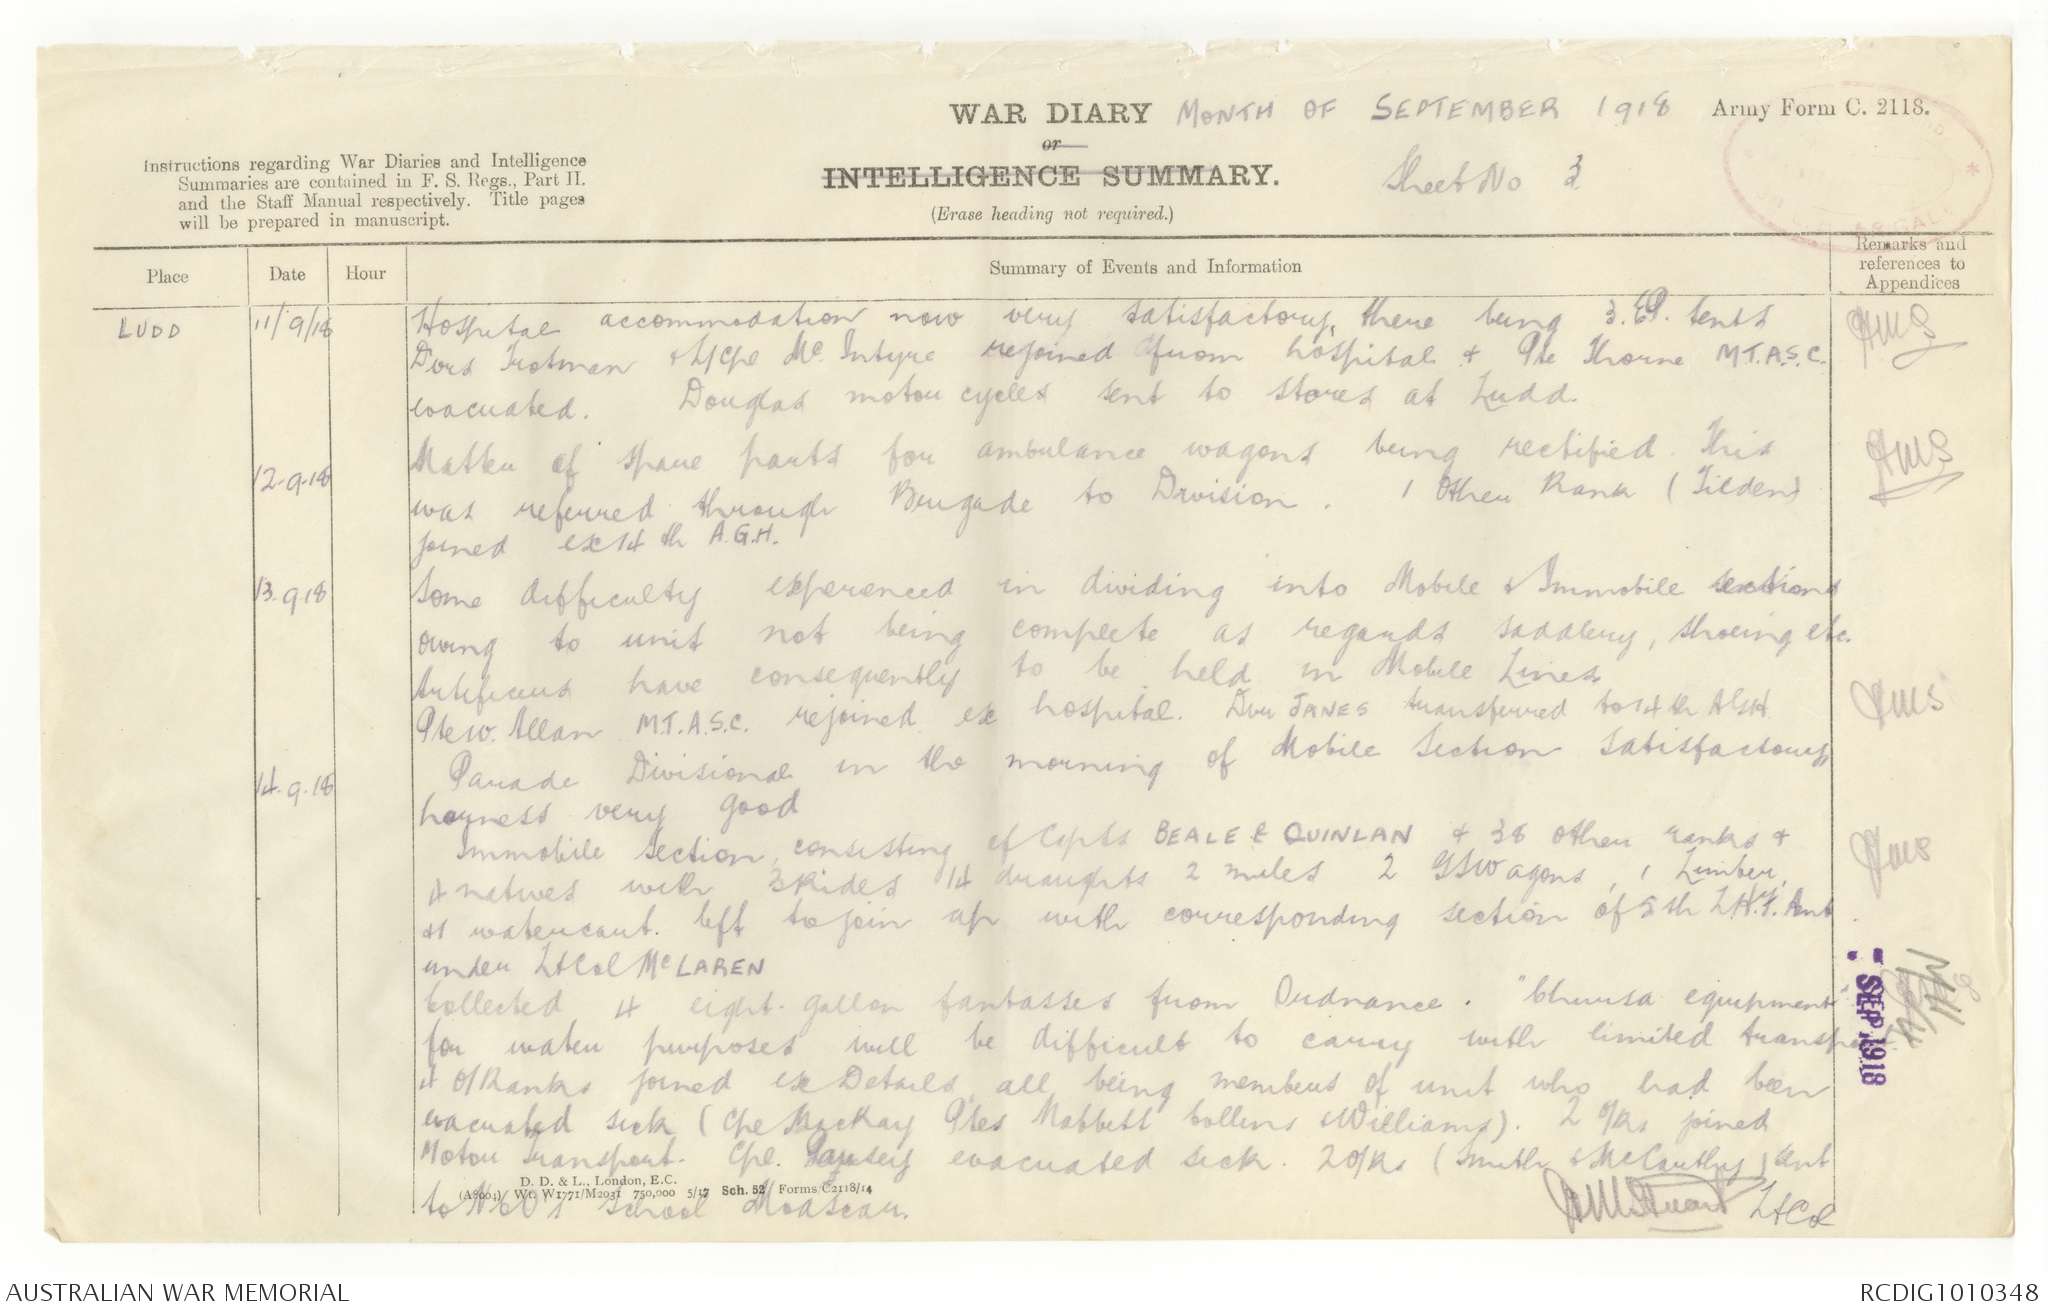 WAR DIARY MONTH OF SEPTEMBER 1918 Army Form C. 2118.
or
INTELLIGENCE SUMMARY. Sheet No 3
(Erase heading not required.)
Instructions regarding War Diaries and Intelligence
Summaries are contained in F. S. Regs., Part II.
and the Staff Manual respectively. Title pages
will be prepared in manuscript.
Place Date Hour Summary of Events and Information Remarks and references to Appendices
LUDD 11/9/18 Hospital accommodation now very satisfactory, there being 3. E.P. tents
Dvrs Trotman & L/Cpl McIntyre rejoined from hospital & Pte Thorne M.T.A.S.C.
evacuated. Douglas motor cycles sent to stores at Ludd.
12.9.18 Matter of spare parts for ambulance wagons being rectified. This
was referred through Brigade to Division. 1 Other Rank (Tilden)
joined ex 14th A.G.H.
13.9.18 Some difficulty experienced in dividing into Mobile & Immobile sections
owing to unit not being complete as regards saddlery, shoeing etc.
Artificers have consequently to be held in Mobile Lines
Pte W. Allan M.T.A.S.C. rejoined ex hospital. Dvr JANES transferred to 14th AGH
14.9.18 Parade Divisional in the morning of Mobile Section satisfactory
harness very good
Immobile Section, consisting of Capts BEALE & QUINLAN & 38 other ranks &
4 natives with 3 Rides 14 draughts 2 mules 2 GS Wagons, 1 Limber,
&1 watercart. left to join up with corresponding section of 5th L.H.F. Amb.
under Lt Col McLAREN
Collected 4 eight-gallon fantasses from Ordnance. "Khursa equipment"
for water purposes will be difficult to carry with limited transport
4 O/Ranks joined ex Details, all being members of unit who had been
evacuated sick (Cpl MacKay Ptes Mabbett Collins & Williams). 2 O/Rs joined
Motor Transport. Cpl. evacuated sick. 2 O/Rs (Smith & McCarthy) sent
to School Moascar.
Lt Col
D. D. & L., London, E.C.
(A8004) Wt. W1771/M2031 750,000 5/17 Sch. 52 Forms/C2118/14
SEP 1918
AUSTRALIAN WAR MEMORIAL RCDIG1010348